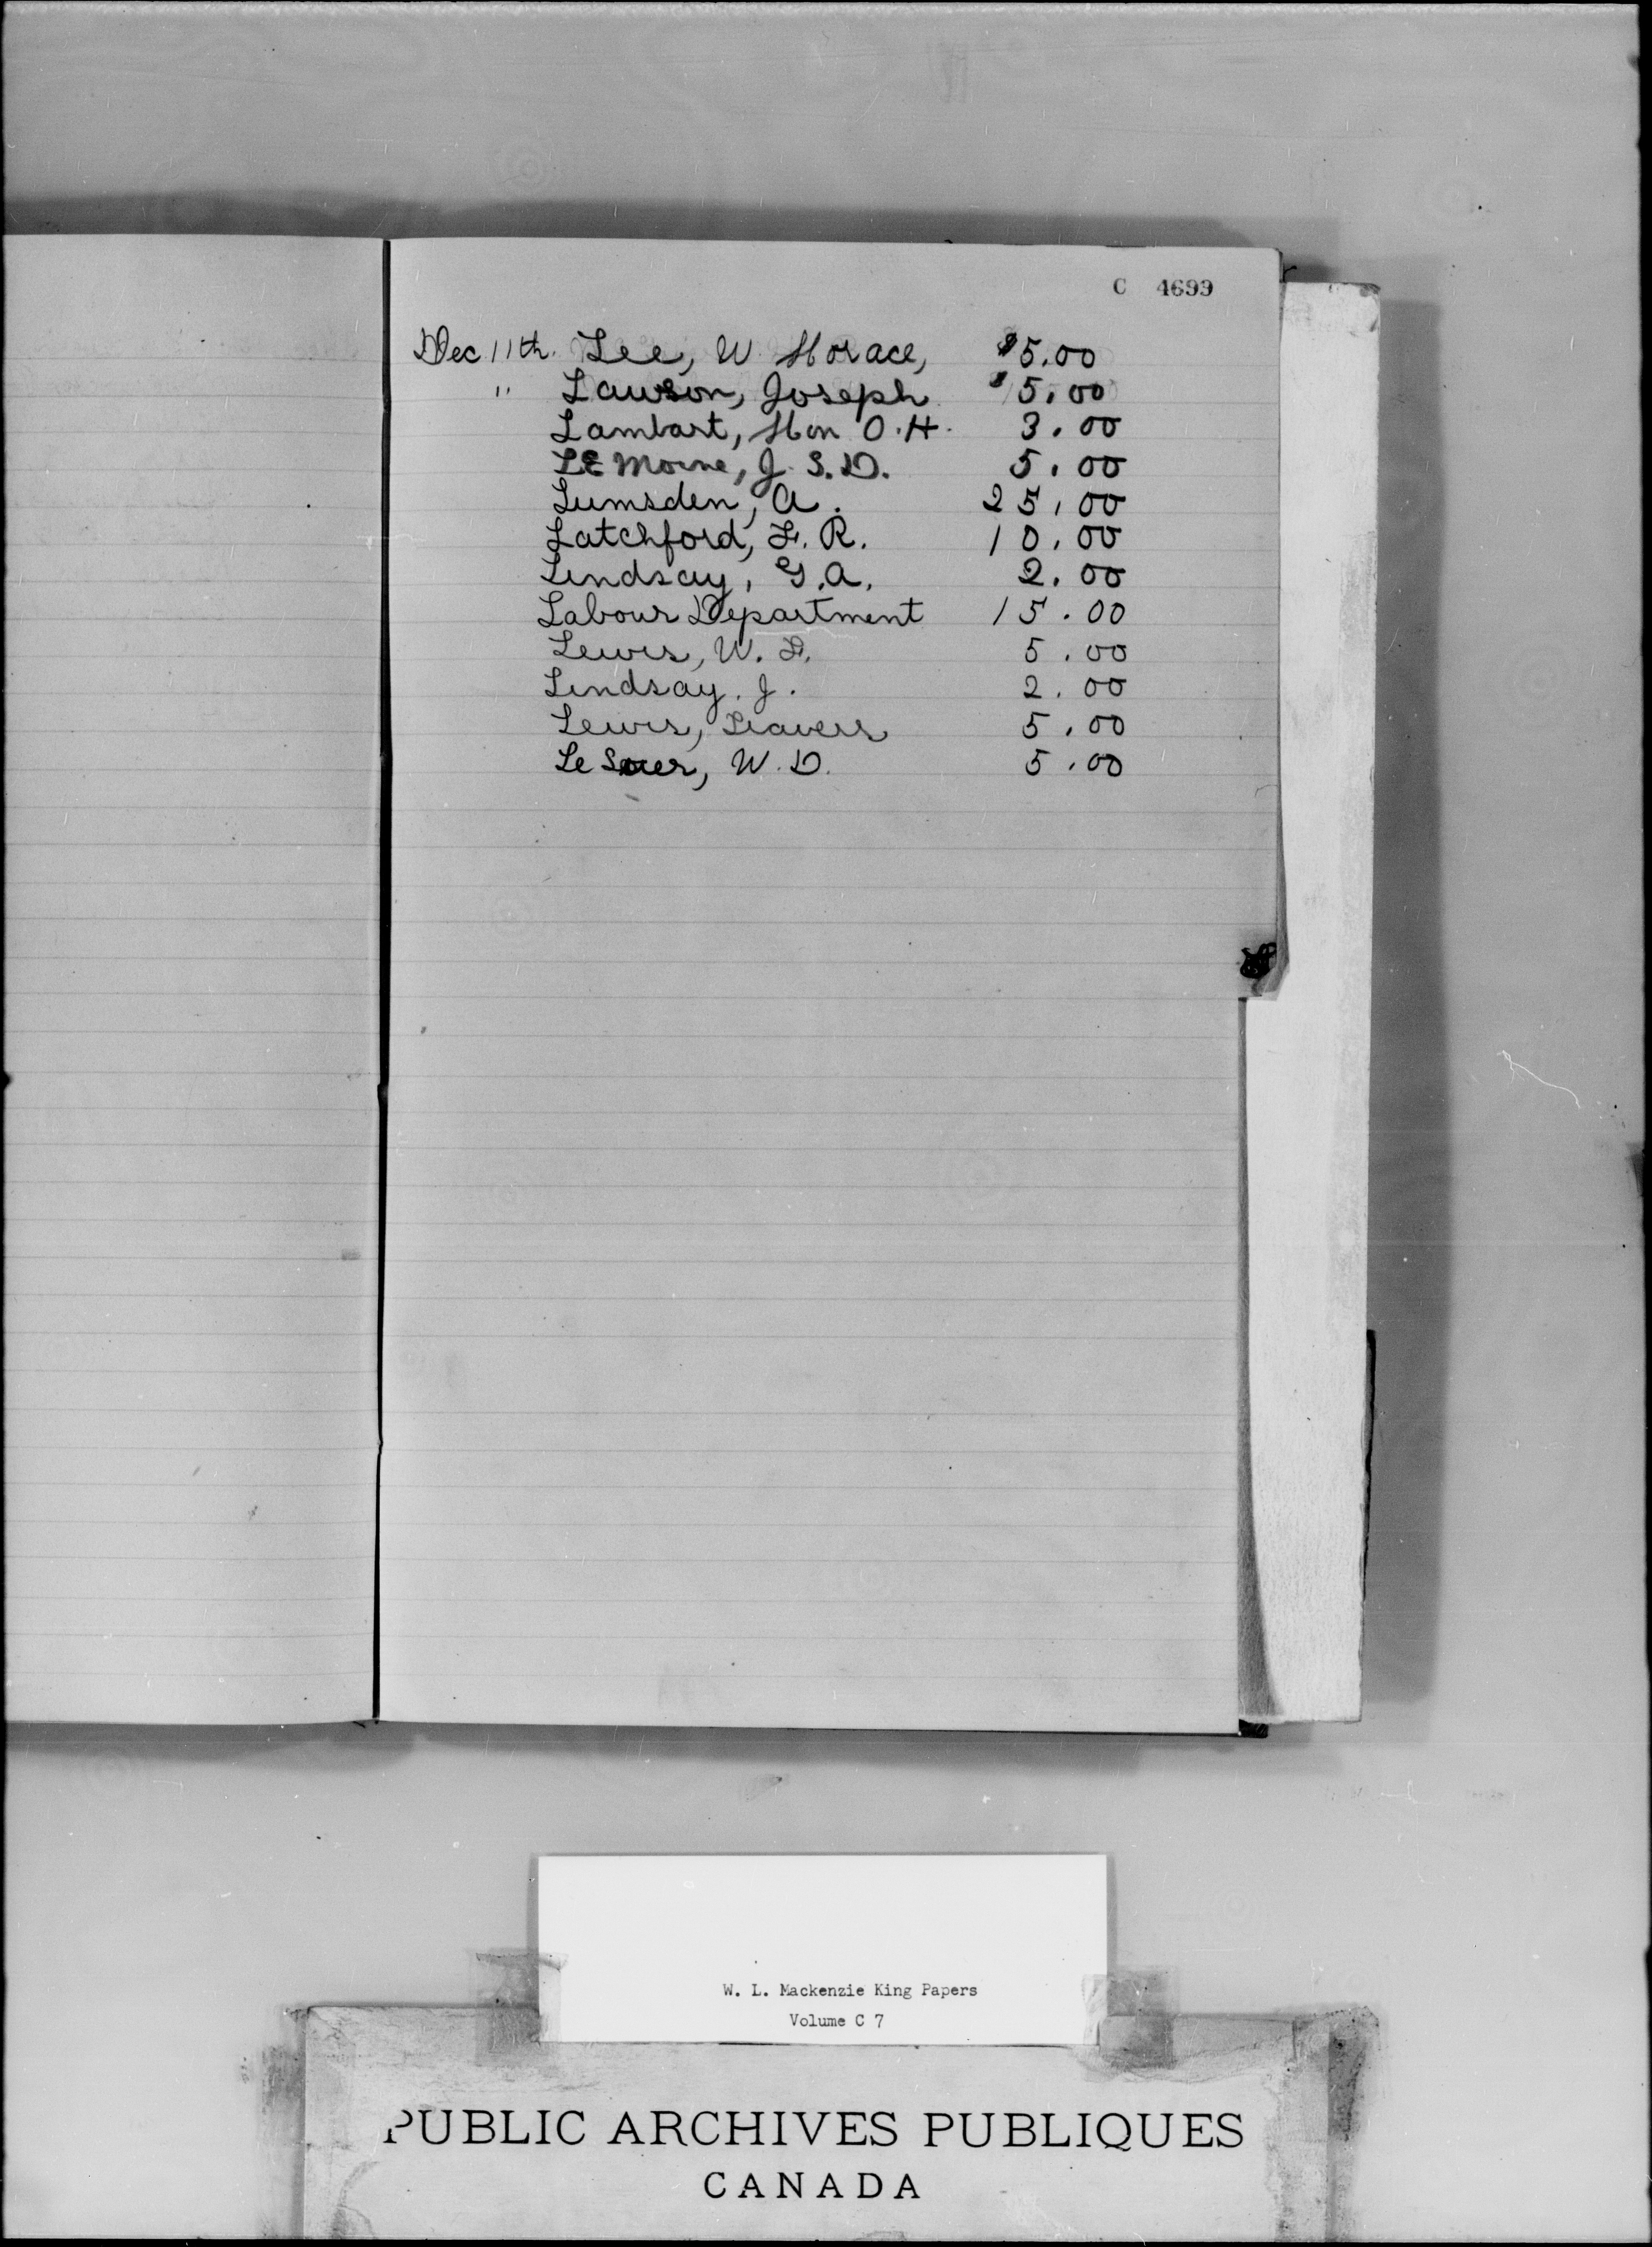 C 4699
Dec 11th. Lee, W. Horace, $5.00
" Lawson, Joseph $5.00
Lambart, Hon O.H. 3.00
LE Moine, J. S. D. 5.00
Lumsden, A. 25.00
Latchford, F. R. 10.00
Lindsay, G. A. 2.00
Labour Department 15.00
Lewis, W. F. 5.00
Lindsay. J. 2.00
Lewis, Travers 5.00
Le Suer, W. D. 5.00
W. L. Mackenzie King Papers
Volume C 7
PUBLIC ARCHIVES PUBLIQUES
CANADA